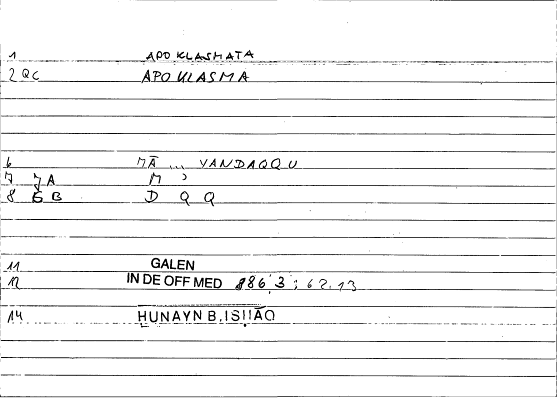 1 APOKLASMATA
2 QC APOKLASMA
6 MĀ ... YANDAQQU
7 JA M ʾ
8 GB D Q Q
11 GALEN
12 IN DE OFF MED 886,3; 62.13
14 HUNAYN B. ISḤĀQ